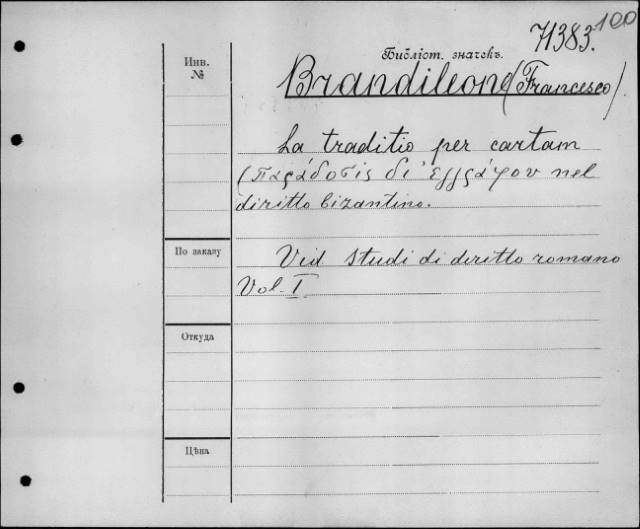 71383. 100
Инв. №
Библіот. значекъ.
Brandileone (Francesco)
La traditio per cartam
(παράδοσις δι' ἐγγράφου nel
diritto bizantino.
По заказу
Vid Studi di diritto romano
Vol. I
Откуда
Цѣна